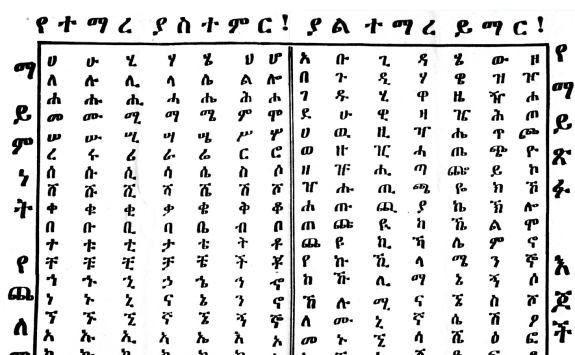 የተማረ ያስተምር! ያልተማረ ይማር!
ማይምነት የጨለ
ሀ ሁ ሂ ሃ ሄ ህ ሆ አ ቡ ጊ ዳ ሄ ው ዞ
ለ ሉ ሊ ላ ሌ ል ሎ በ ጉ ዲ ሃ ዌ ዝ ዦ
ሐ ሑ ሒ ሓ ሔ ሕ ሖ ገ ዱ ሂ ዋ ዜ ዥ ሖ
መ ሙ ሚ ማ ሜ ም ሞ ደ ሁ ዊ ዛ ዤ ሕ ጦ
ሠ ሡ ሢ ሣ ሤ ሥ ሦ ሀ ዉ ዚ ዣ ሔ ጥ ጮ
ረ ሩ ሪ ራ ሬ ር ሮ ወ ዙ ዢ ሓ ጤ ጭ ዮ
ሰ ሱ ሲ ሳ ሴ ስ ሶ ዘ ዡ ሒ ጣ ጬ ይ ኮ
ሸ ሹ ሺ ሻ ሼ ሽ ሾ ዠ ሑ ጢ ጫ ዬ ክ ኾ
ቀ ቁ ቂ ቃ ቄ ቅ ቆ ሐ ጡ ጪ ያ ኬ ኽ ሎ
በ ቡ ቢ ባ ቤ ብ ቦ ጠ ጩ ዪ ካ ኼ ል ሞ
ተ ቱ ቲ ታ ቴ ት ቶ ጨ ዩ ኪ ኻ ሌ ም ኖ
ቸ ቹ ቺ ቻ ቼ ች ቾ የ ኩ ኺ ላ ሜ ን ኞ
ኀ ኁ ኂ ኃ ኄ ኅ ኆ ከ ኹ ሊ ማ ኔ ኝ ሶ
ነ ኑ ኒ ና ኔ ን ኖ ኸ ሉ ሚ ና ኜ ስ ሾ
ኘ ኙ ኚ ኛ ኜ ኝ ኞ ለ ሙ ኒ ኛ ሴ ሽ ዖ
አ ኡ ኢ ኣ ኤ እ ኦ መ ኑ ኚ ሳ ሼ ዕ ፎ
የማይጽፉ እጆች